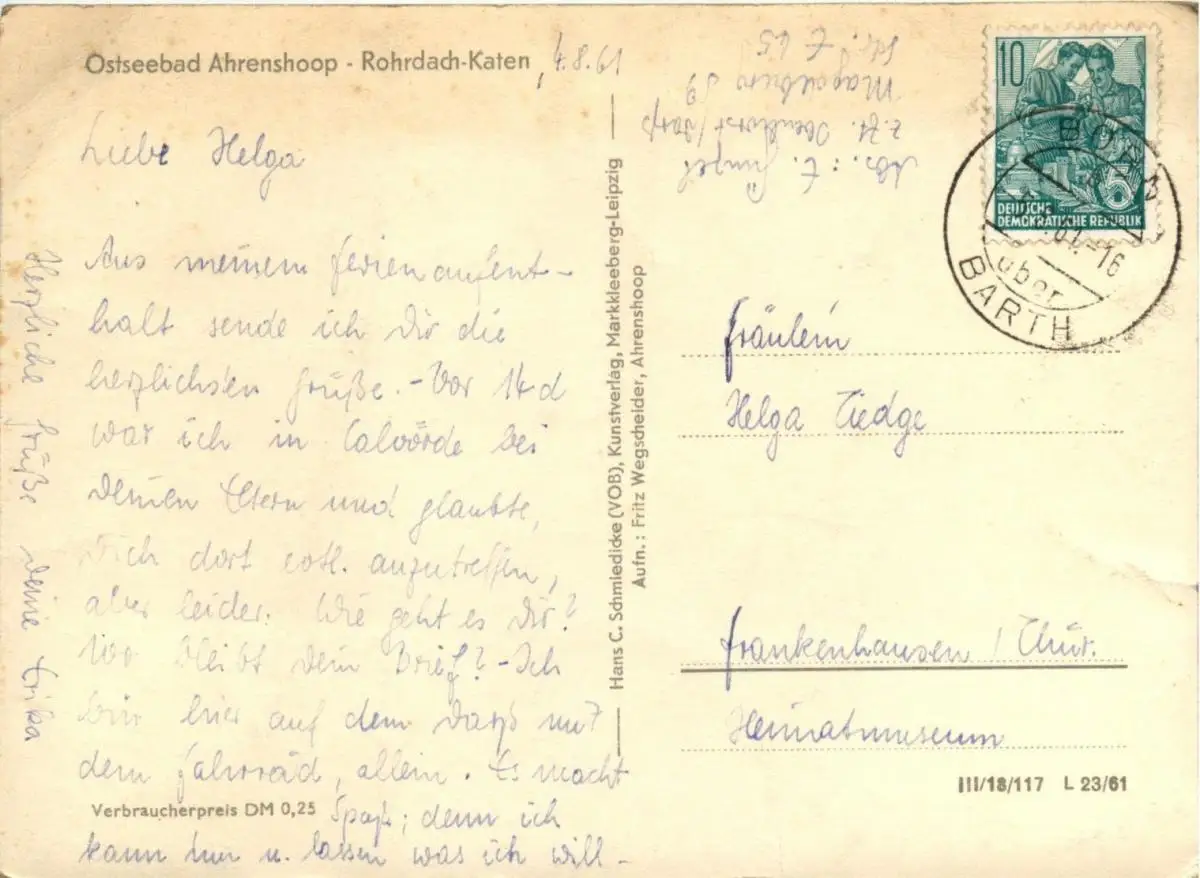 Ostseebad Ahrenshoop - Rohrdach-Katen
4.8.61
Liebe Helga
Aus meinem Ferienaufent-
halt sende ich Dir die
herzlichsten Grüße. - Vor 14 d
war ich in Calvörde bei
Deinen Eltern und glaubte,
Dich dort evtl. anzutreffen,
aber leider. Wie geht es Dir?
Wo bleibt Dein Brief? - Ich
bin hier auf dem Darß mit
dem Fahrrad, allein. Es macht
Spaß; denn ich
kann tun u. lassen was ich will -
Herzliche Grüße Deine Erika
Verbraucherpreis DM 0,25
Hans C. Schmiedicke (VOB), Kunstverlag, Markkleeberg-Leipzig
Aufn.: Fritz Wegscheider, Ahrenshoop
Abs.: E.
z. Zt. /Darß
Magdeburg
10
DEUTSCHE
DEMOKRATISCHE REPUBLIK
5
BORN
61.-16
über
BARTH
Fräulein
Helga Tiedge
Frankenhausen / Thür.
Heimatmuseum
III/18/117 L 23/61